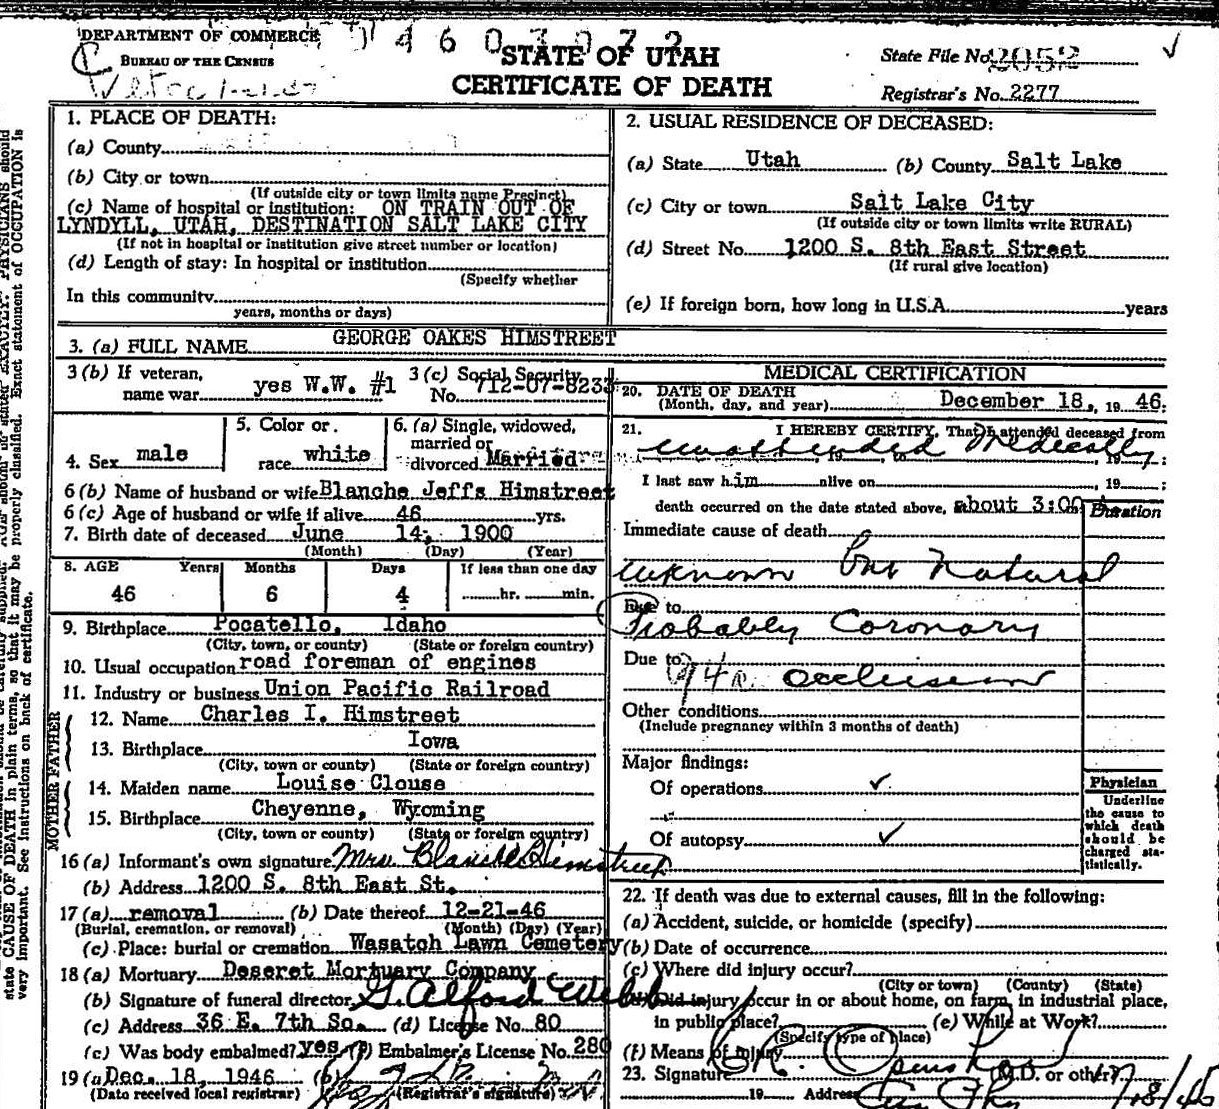 DEPARTMENT OF COMMERCE
BUREAU OF THE CENSUS
STATE OF UTAH
CERTIFICATE OF DEATH
State File No. 2052
Registrar's No. 2277
1. PLACE OF DEATH:
(a) County
(b) City or town
(If outside city or town limits name Precinct)
(c) Name of hospital or institution: ON TRAIN OUT OF
LYNDYLL, UTAH, DESTINATION SALT LAKE CITY
(If not in hospital or institution give street number or location)
(d) Length of stay: In hospital or institution
(Specify whether
In this community
years, months or days)
2. USUAL RESIDENCE OF DECEASED:
(a) State Utah (b) County Salt Lake
(c) City or town Salt Lake City
(If outside city or town limits write RURAL)
(d) Street No. 1200 S. 8th East Street
(If rural give location)
(e) If foreign born, how long in U.S.A. years
3. (a) FULL NAME GEORGE OAKES HIMSTREET
3 (b) If veteran, name war yes W.W. #1
3 (c) Social Security No. 712-07-8233
4. Sex male
5. Color or race white
6. (a) Single, widowed, married or divorced Married
6 (b) Name of husband or wife Blanche Jeffs Himstreet
6 (c) Age of husband or wife if alive 46 yrs.
7. Birth date of deceased June 14, 1900
(Month) (Day) (Year)
8. AGE Years Months Days If less than one day
46 6 4 hr. min.
9. Birthplace Pocatello, Idaho
(City, town, or county) (State or foreign country)
10. Usual occupation road foreman of engines
11. Industry or business Union Pacific Railroad
FATHER
12. Name Charles I. Himstreet
13. Birthplace Iowa
(City, town or county) (State or foreign country)
MOTHER
14. Maiden name Louise Clouse
15. Birthplace Cheyenne, Wyoming
(City, town or county) (State or foreign country)
16 (a) Informant's own signature Mrs. Blanche Himstreet
(b) Address 1200 S. 8th East St.
17 (a) removal (b) Date thereof 12-21-46
(Burial, cremation, or removal) (Month) (Day) (Year)
(c) Place: burial or cremation Wasatch Lawn Cemetery
18 (a) Mortuary Deseret Mortuary Company
(b) Signature of funeral director G. Alford Webb
(c) Address 36 E. 7th So. (d) License No. 80
(e) Was body embalmed? yes (f) Embalmer's License No. 280
19 (a) Dec. 18, 1946 (b)
(Date received local registrar) (Registrar's signature)
MEDICAL CERTIFICATION
20. DATE OF DEATH
(Month, day, and year) December 18, 19 46
21. I HEREBY CERTIFY, That I attended deceased from
unattended Medically
I last saw him alive on , 19 ;
death occurred on the date stated above, about 3:00
Duration
Immediate cause of death
unknown but Natural
Due to
Probably Coronary
Due to
94a occlusion
Other conditions
(Include pregnancy within 3 months of death)
Major findings:
Of operations ✓
Of autopsy ✓
Physician
Underline
the cause to
which death
should be
charged sta-
tistically.
22. If death was due to external causes, fill in the following:
(a) Accident, suicide, or homicide (specify)
(b) Date of occurrence
(c) Where did injury occur?
(City or town) (County) (State)
Did injury occur in or about home, on farm, in industrial place,
in public place? (e) While at Work?
(Specify type of place)
(f) Means of injury
23. Signature M.D. or other
19 Address